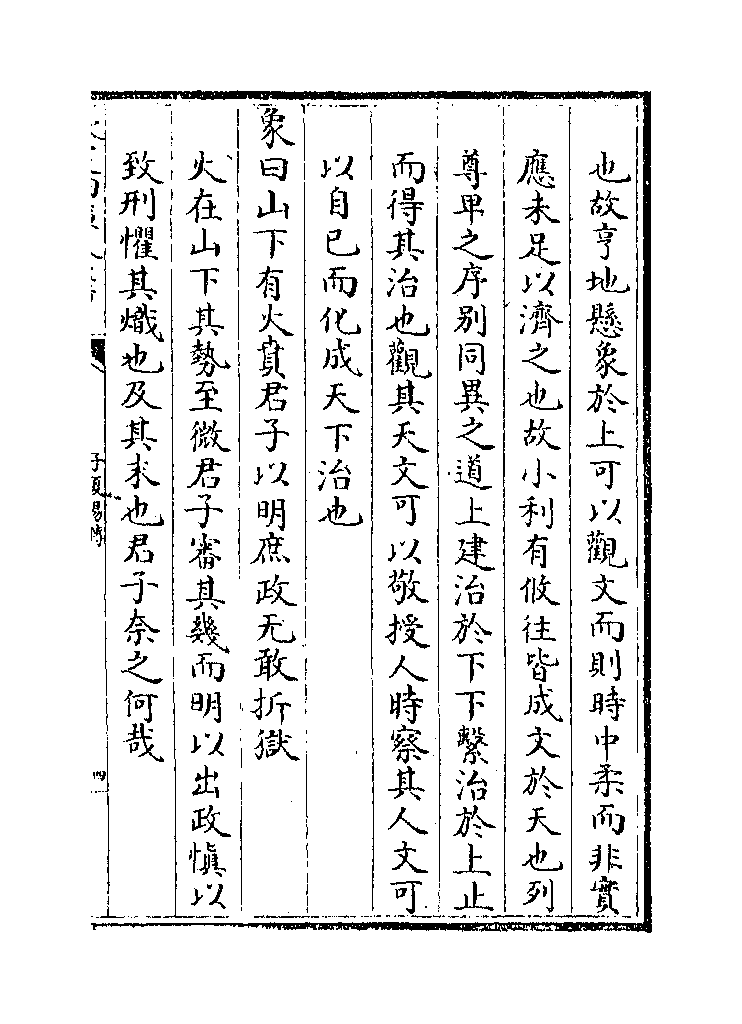 也故亨地懸象於上可以觀文而則時中柔而非實
應未足以濟之也故小利有攸往皆成文於天也列
尊卑之序別同異之道上建治於下下繫治於上止
而得其治也觀其天文可以敬授人時察其人文可
以自已而化成天下治也
象曰山下有火賁君子以明庶政无敢折獄
火在山下其勢至微君子審其幾而明以出政慎以
致刑懼其熾也及其求也君子奈之何哉
子夏易傳
四